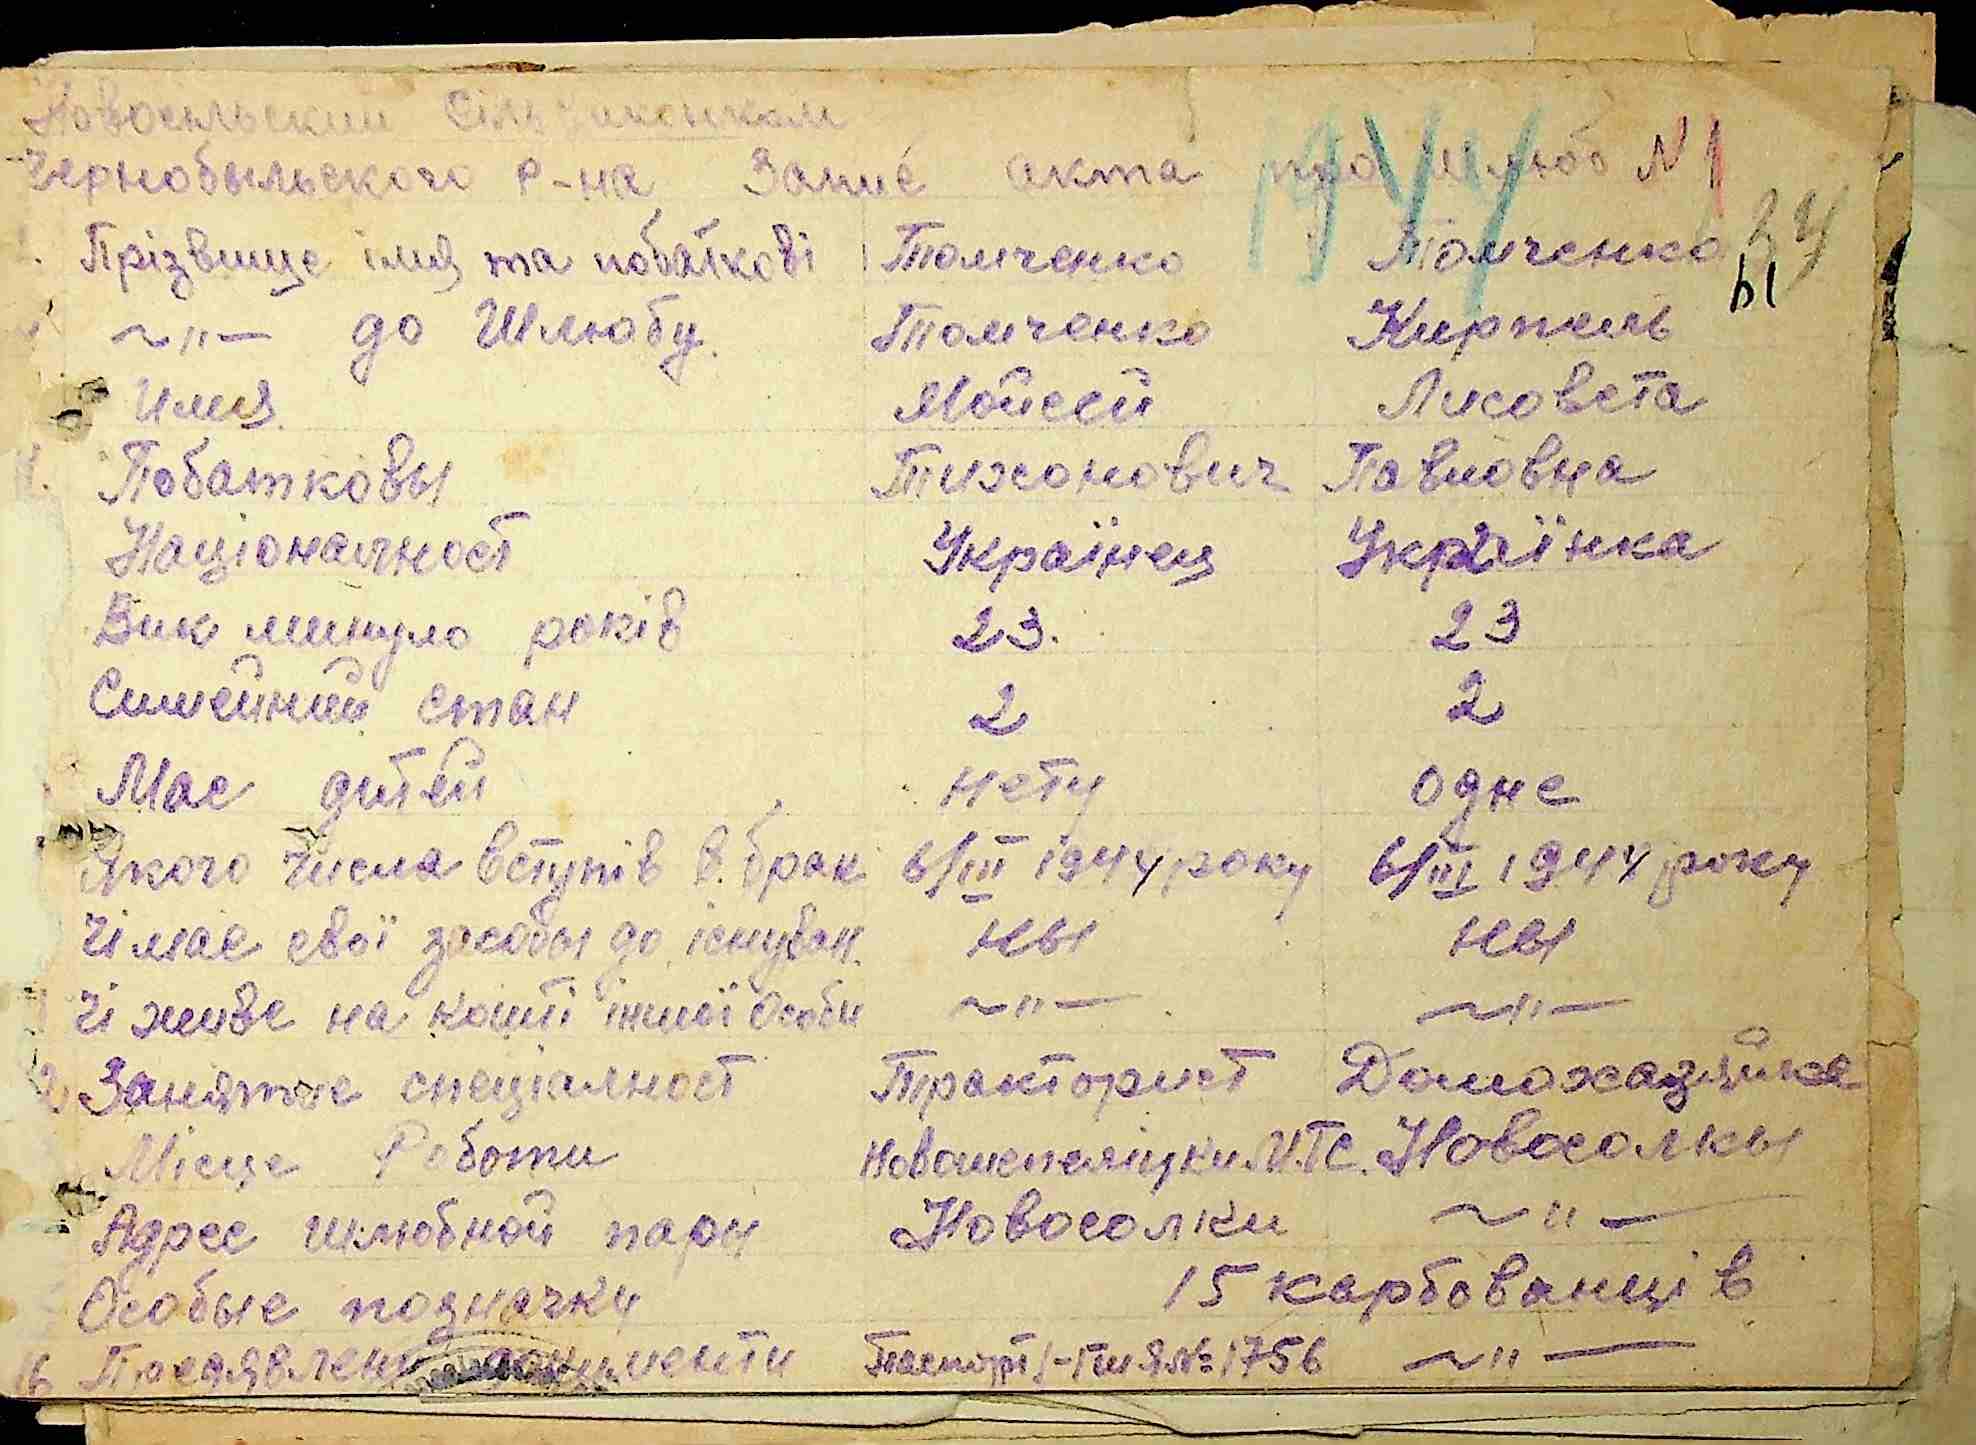 Новосельский Сільвиконком 1944
Чернобыльского Р-на Запис акта про шлюб №1
24
Прізвище імя та побаткові Томченко Томченко
~"— до Шлюбу. Томченко Кирпель
Имя Мойсей Лисовета
Побатковы Тихонович Павловна
Національност Українец Українка
Вик минуло років 23. 23
Симейний стан 2 2
Мае дитей нету одне
Якого числа вступів в брак 6/III 1944 року 6/III 1944 року
Чі мае свої засобы до існуван. ны ны
Чі живе на кошті іншої особи ~"— ~"—
Занятие спеціалност Тракторист Домохазяйка
Місце Роботи Новошепеліцки М.Т.С. Новосолкы
Адрес шлюбной пары Новосолки ~"—
Особые позначки 15 карбованців
16 Предявлени документи Паспорт №1756 ~"—